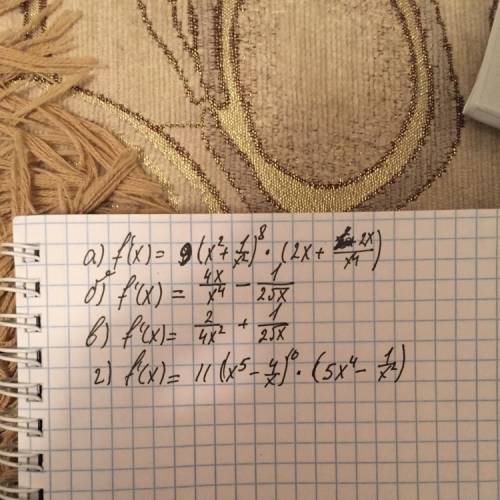 а) f'(x) = 9(x² + 1/x²)⁸ · (2x + 2x/x⁴)
б) f'(x) = 4x/x⁴ - 1/2√x
в) f'(x) = 2/4x² + 1/2√x
г) f'(x) = 11(x⁵ - 4/x)¹⁰ · (5x⁴ - 1/x²)